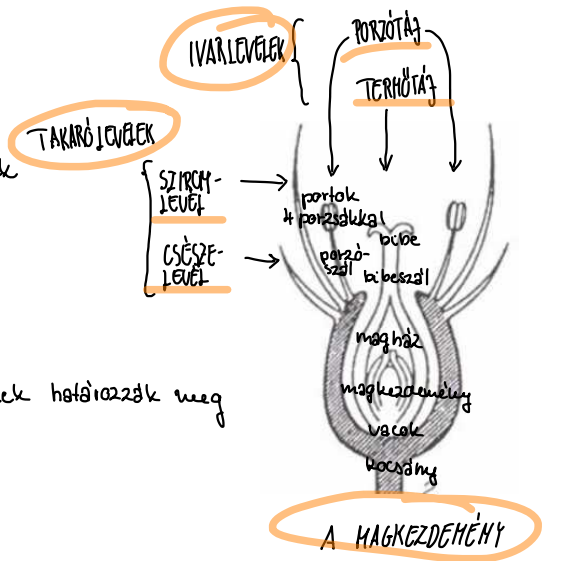 IVARLEVELEK
PORZÓTÁJ
TERMŐTÁJ
TAKARÓLEVELEK
SZIROM-
LEVÉL
CSÉSZE-
LEVÉL
portok
4 porzsákkal
bibe
porzó-
szál
bibeszál
magház
magkezdemény
vacok
kocsány
ek határozzák meg
A MAGKEZDEMÉNY